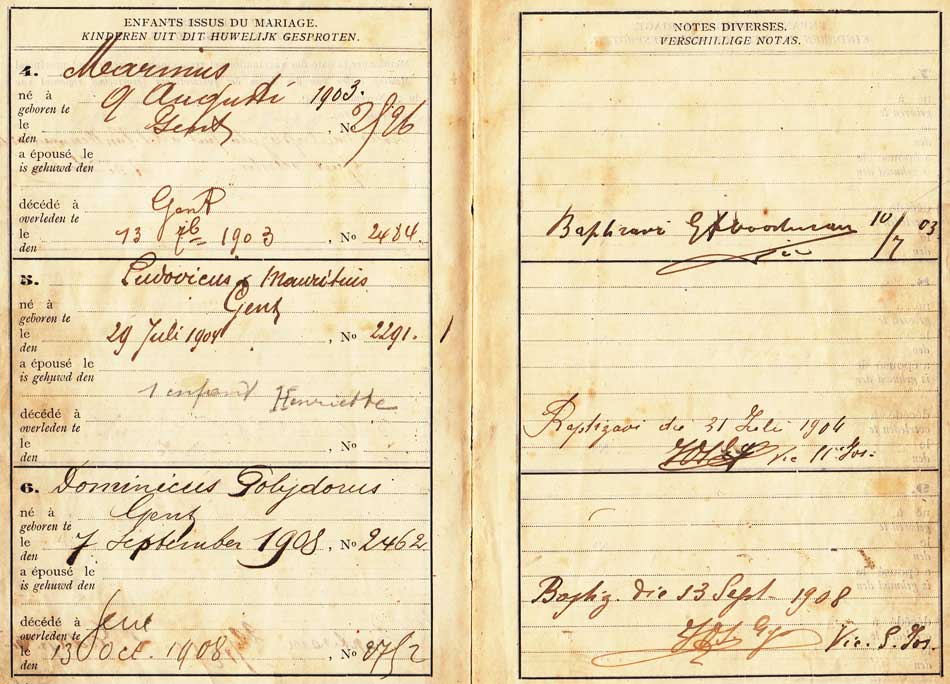 ENFANTS ISSUS DU MARIAGE.
KINDEREN UIT DIT HUWELIJK GESPROTEN.
4. Marinus
né à
geboren te
9 Augusti 1903.
le
den
Gent, No
a épousé le
is gehuwd den
décédé à
overleden te
Gent
le
den
13 7b 1903, No 2484.
5. Ludovicus Mauritius
né à
geboren te
Gent
le
den
29 Juli 1904, No 2291.
a épousé le
is gehuwd den
1 enfant Henriette
décédé à
overleden te
le
den
, No
6. Dominicus Polydorus
né à
geboren te
Gent
le
den
7 September 1908, No 2462.
a épousé le
is gehuwd den
décédé à
overleden te
le
den
13 Oct. 1908, No
NOTES DIVERSES.
VERSCHILLIGE NOTAS.
Baptizavi 10/7 03
Baptizavi die 31 Juli 1904
Vic
Baptiz. die 13 Sept 1908
Vic. S. Jos.